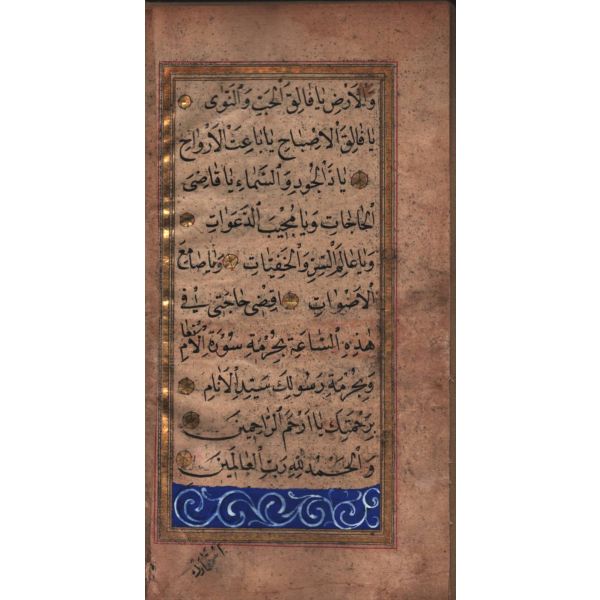 وَالْاَرْضِ يَا فَالِقَ الْحَبِّ وَالنَّوٰى
يَا فَالِقَ الْاِصْبَاحِ يَا بَاعِثَ الْاَرْوَاحِ
يَا ذَالْجُودِ وَالسَّمَاءِ يَا قَاضِىَ
الْحَاجَاتِ وَيَا مُجِيبَ الدَّعَوَاتِ
وَيَا عَالِمَ السِّرِّ وَالْخَفِيَّاتِ وَيَا سَامِعَ
الْاَصْوَاتِ اِقْضِ حَاجَتِى فِى
هٰذِهِ السَّاعَةِ بِحُرْمَةِ سُورَةِ الْاَنْعَامِ
وَبِحُرْمَةِ رَسُولِكَ سَيِّدِ الْاَنَامِ
بِرَحْمَتِكَ يَا اَرْحَمَ الرَّاحِمِينَ
وَالْحَمْدُ لِلّٰهِ رَبِّ الْعَالَمِينَ